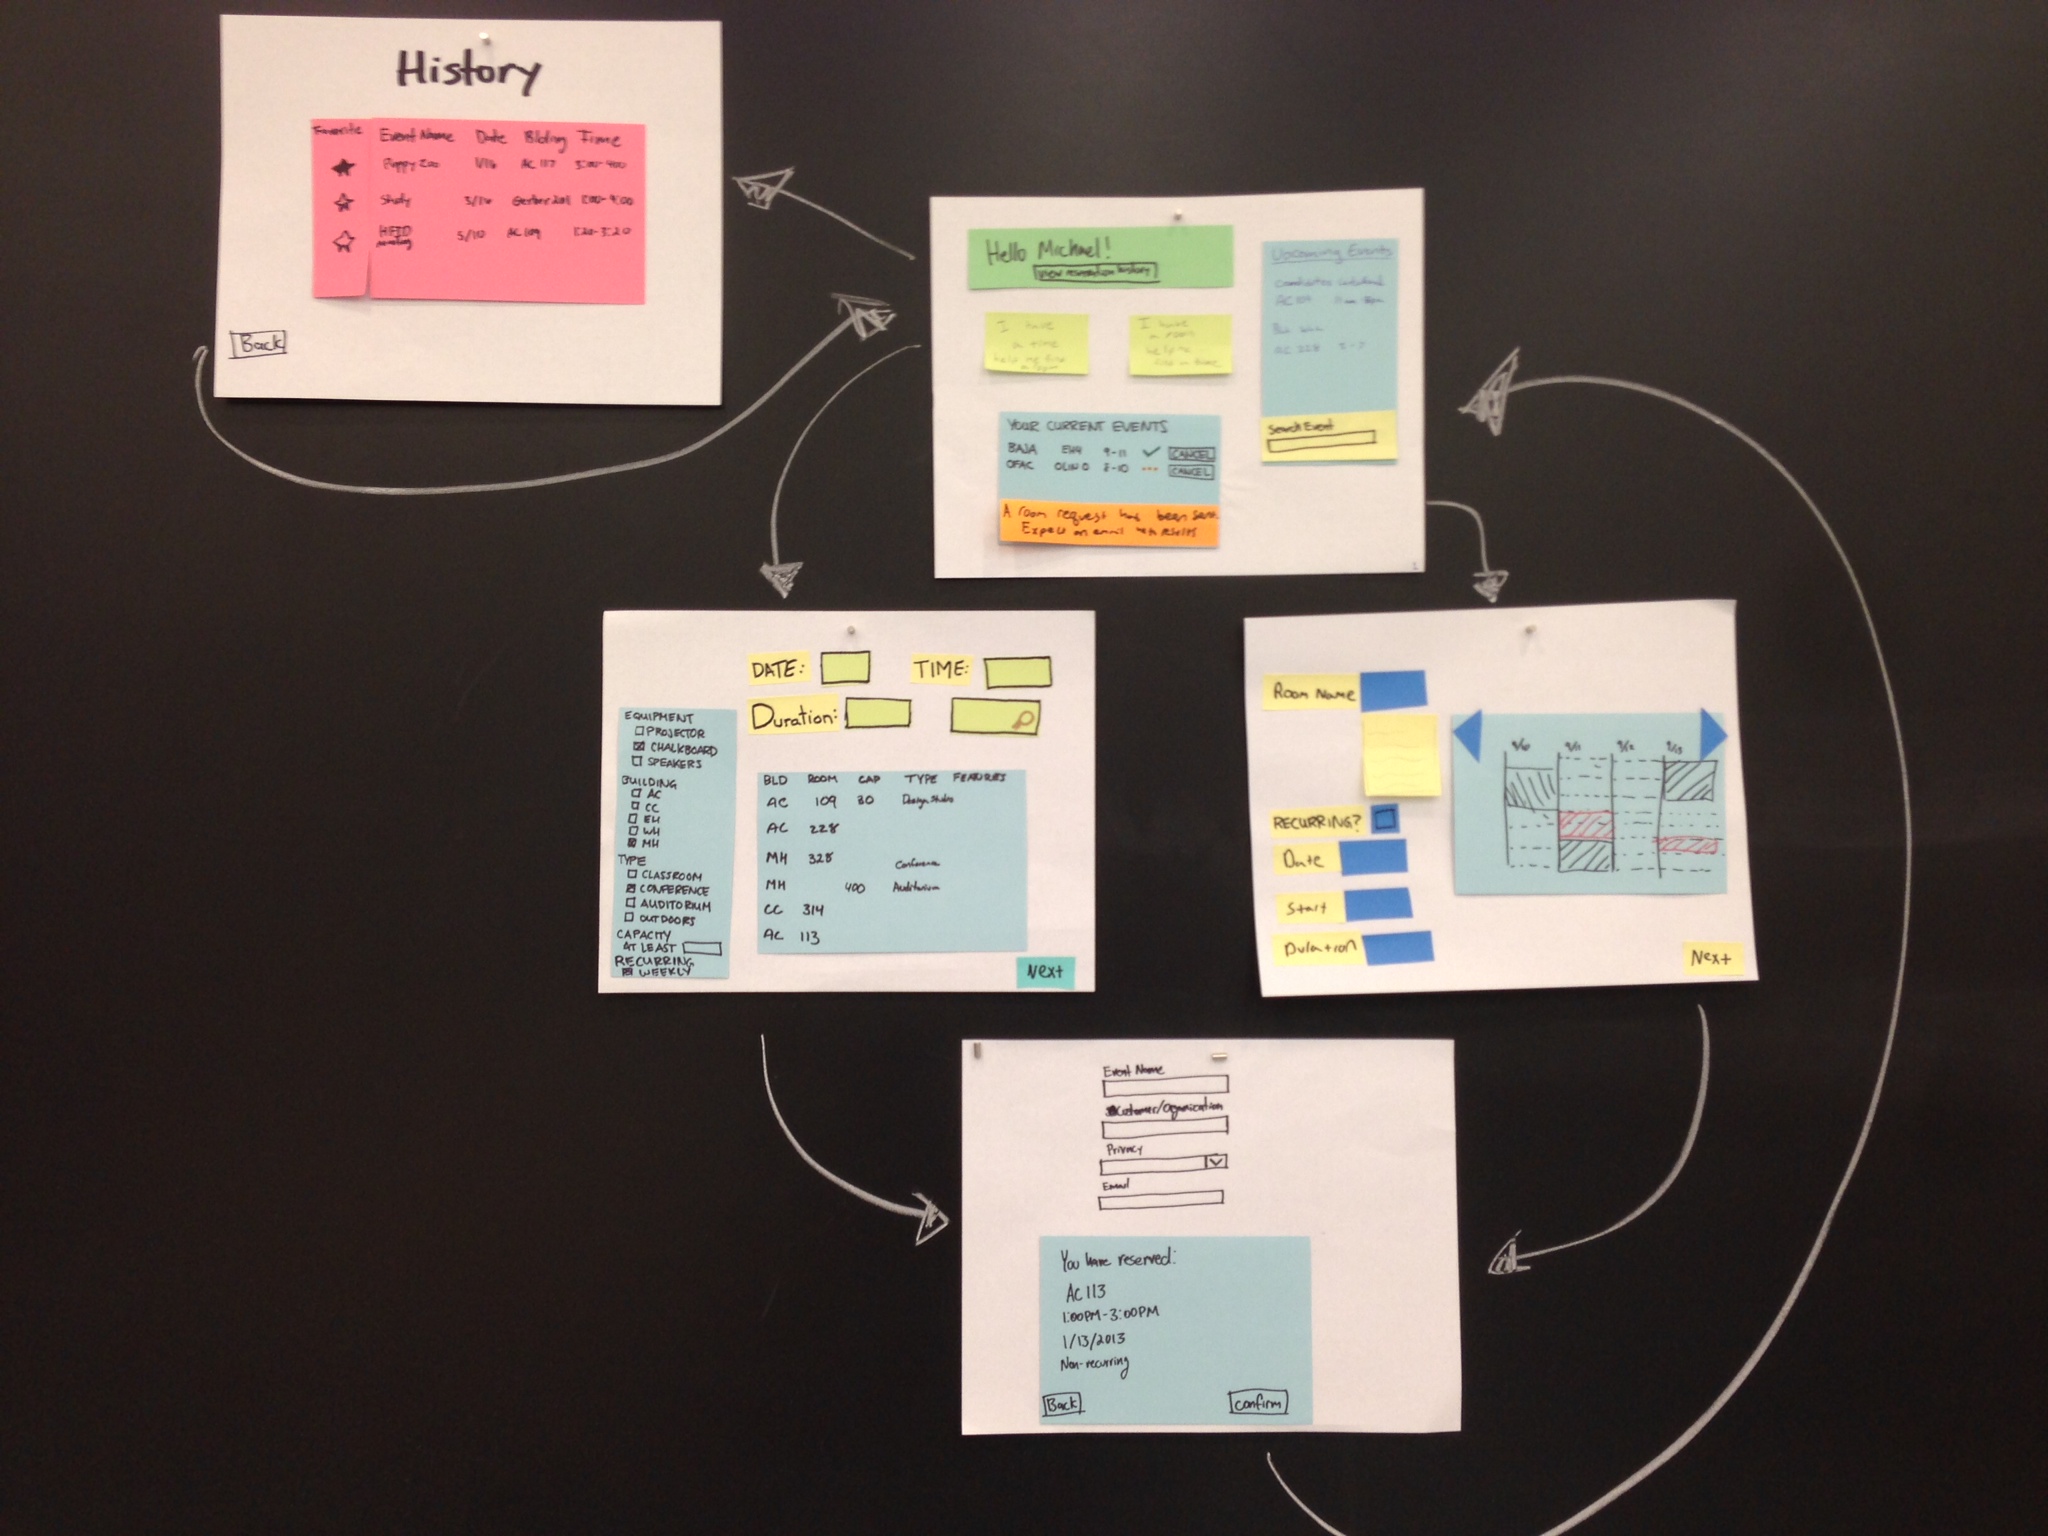 History
Favorite Event Name Date Blding Time
Puppy Zoo 1/16 AC 117 3:00-400
Study 3/14 Gerber 201
HFID meeting 5/10 AC 109 1:20-3:20
Back
Hello Michael!
View reservation history
I have
a time
help me find
I have
a room
help me
find a time
YOUR CURRENT EVENTS
BAJA EH4 9-11 ✓ CANCEL
OFAC OLIN O 8-10 ... CANCEL
A room request has been sent.
Expect an email with results
Upcoming Events
AC 109
AC 228 5-7
Search Event
1
DATE: TIME:
Duration:
EQUIPMENT
PROJECTOR
CHALKBOARD
SPEAKERS
BUILDING
AC
CC
EH
WH
MH
TYPE
CLASSROOM
CONFERENCE
AUDITORIUM
OUTDOORS
CAPACITY
AT LEAST
RECURRING
WEEKLY
BLD ROOM CAP TYPE FEATURES
AC 109 30 Design Studio
AC 228
MH 328 Conference
MH 400 Auditorium
CC 314
AC 113
Next
Room Name
RECURRING?
Date
Start
Duration
9/10 9/11 9/12 9/13
Next
Event Name
Customer/Organization
Privacy
Email
You have reserved:
AC 113
1:00PM-3:00PM
1/13/2013
Non-recurring
Back Confirm